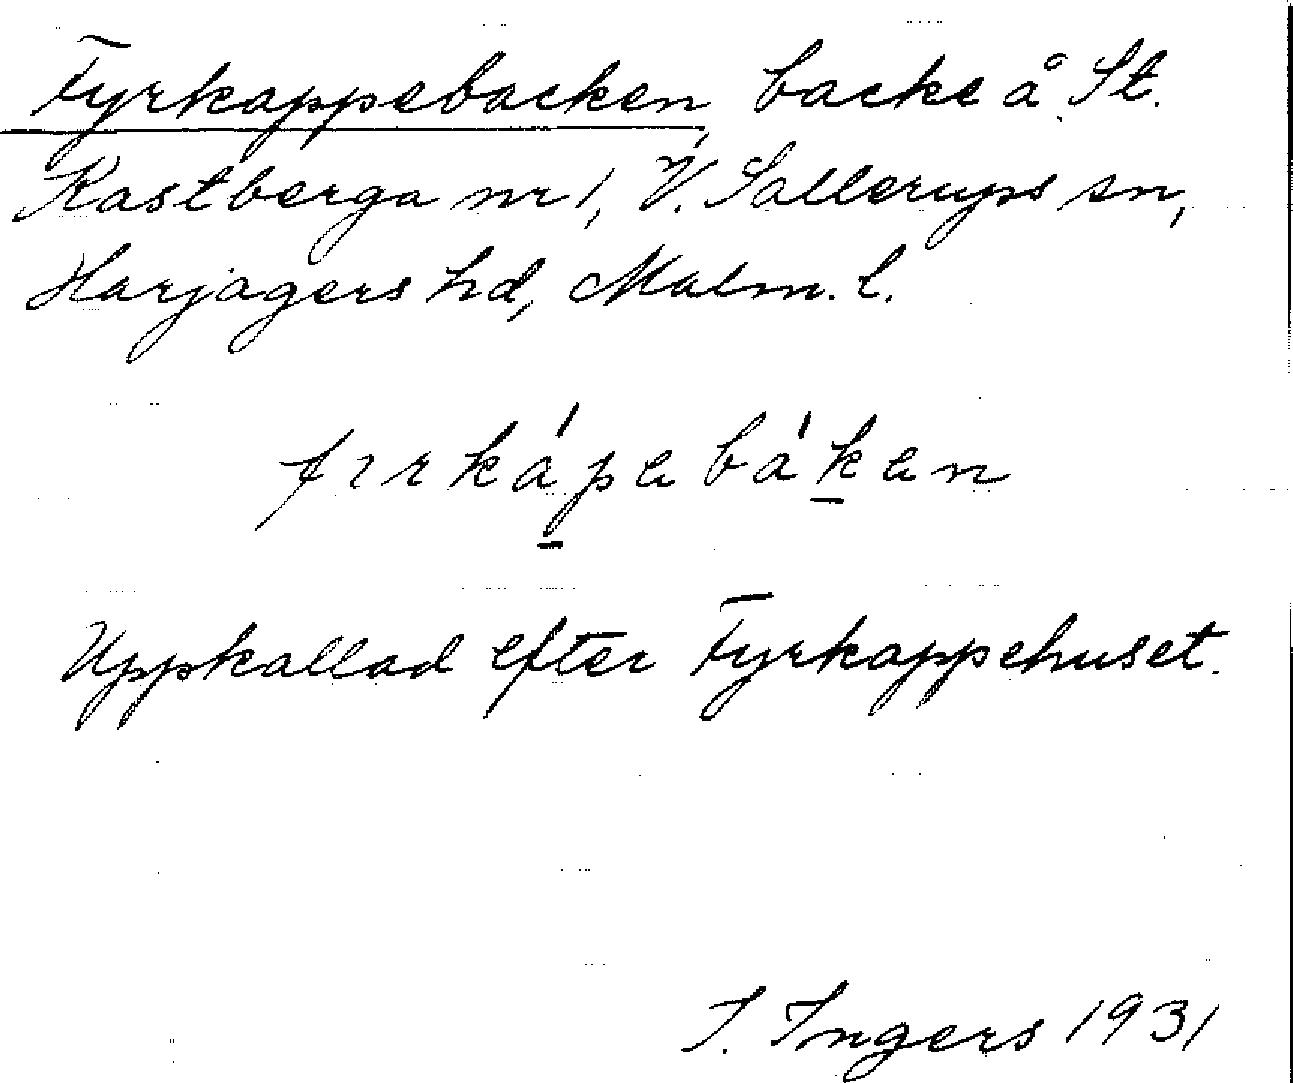 Fyrkappebacken, backe å St.
Kastberga nr 1, V. Sallerups sn,
Harjagers hd, Malm. l.
fırkápebáken
Uppkallad efter Fyrkappehuset.
I. Ingers 1931